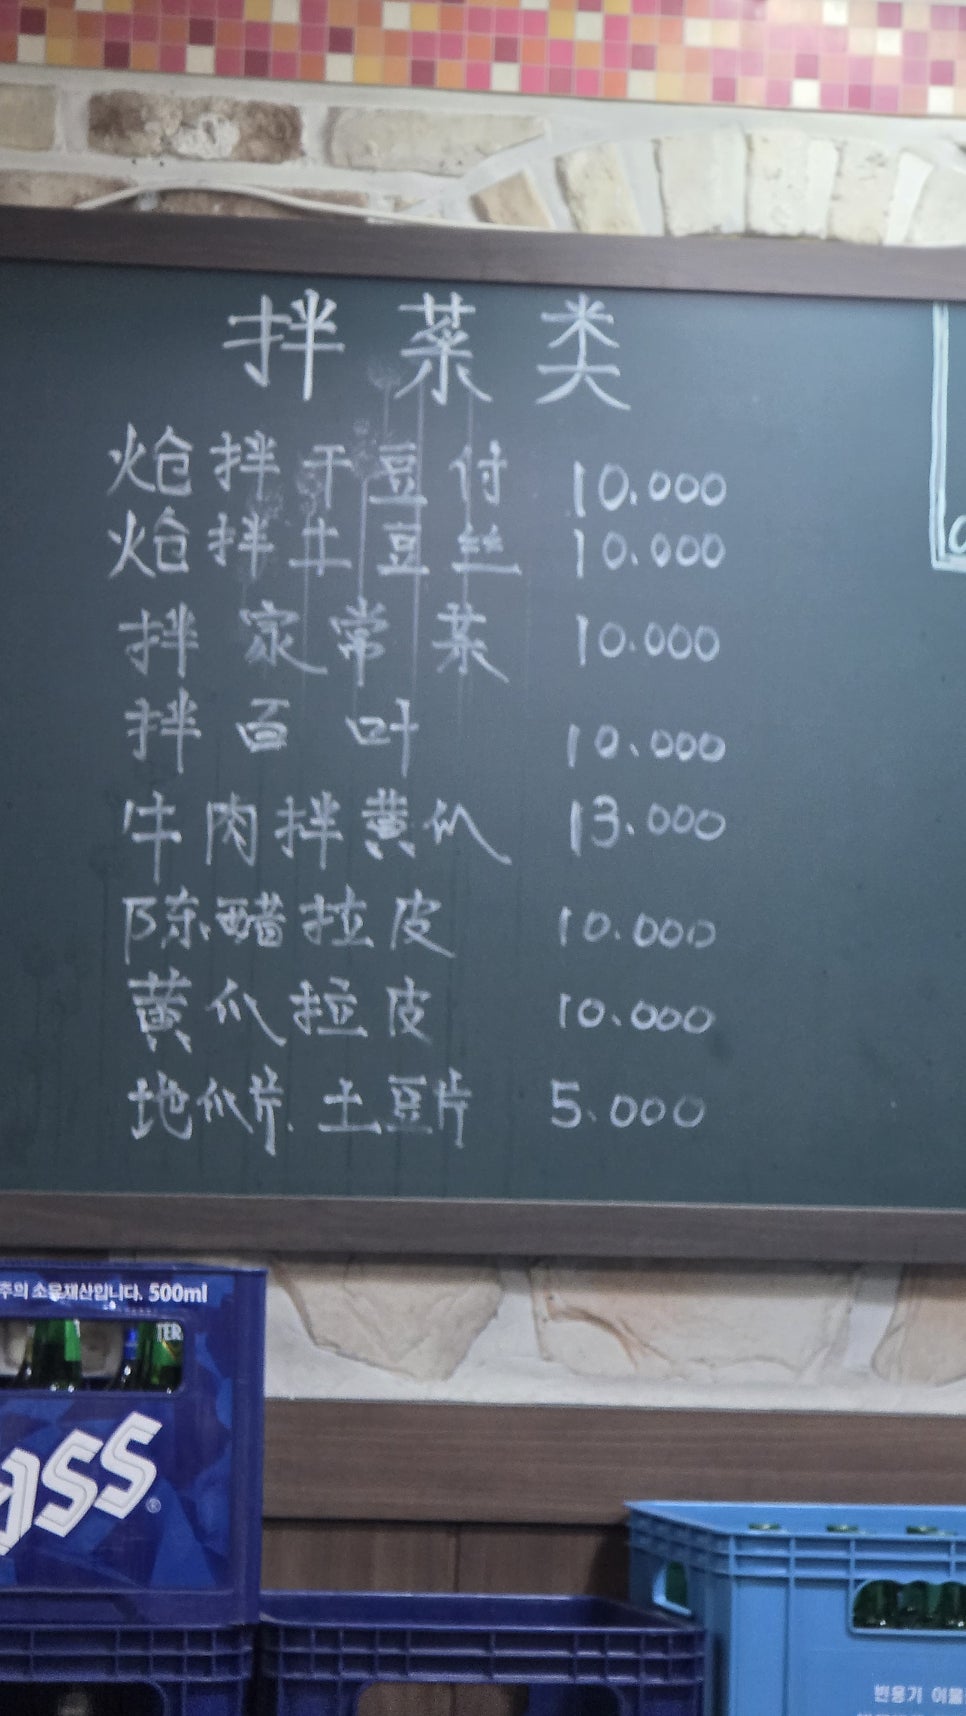 拌菜类
炝拌干豆付 10.000
炝拌土豆丝 10.000
拌家常菜 10.000
拌百叶 10.000
牛肉拌黄瓜 13.000
陈醋拉皮 10.000
黄瓜拉皮 10.000
地瓜片. 土豆片 5.000
주의 소유재산입니다. 500ml
TER
ass
반용기 이물